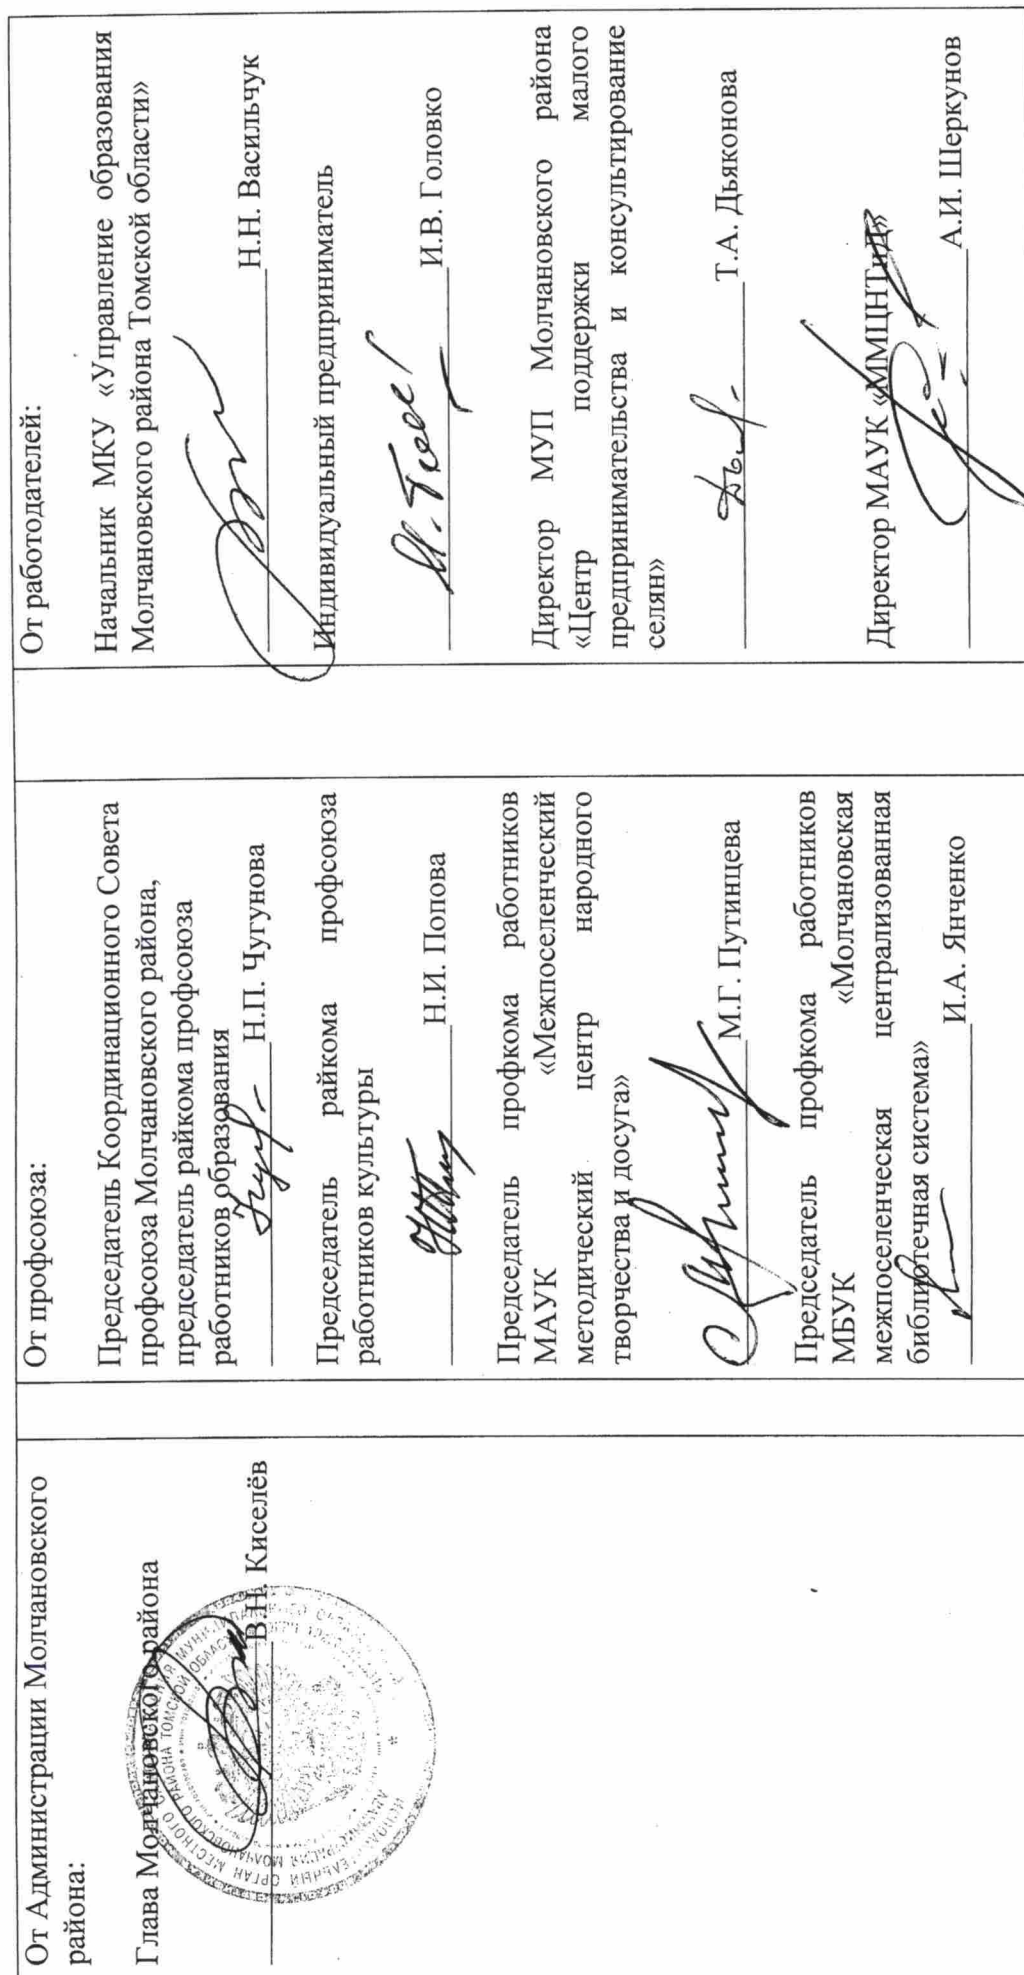 От Администрации Молчановского
района:
Глава Молчановского района
В.Н. Киселёв
От профсоюза:
Председатель Координационного Совета
профсоюза Молчановского района,
председатель райкома профсоюза
работников образования
Н.П. Чугунова
Председатель райкома профсоюза
работников культуры
Н.И. Попова
Председатель профкома работников
МАУК «Межпоселенческий
методический центр народного
творчества и досуга»
М.Г. Путинцева
Председатель профкома работников
МБУК «Молчановская
межпоселенческая централизованная
библиотечная система»
И.А. Янченко
От работодателей:
Начальник МКУ «Управление образования
Молчановского района Томской области»
Н.Н. Васильчук
Индивидуальный предприниматель
И.В. Головко
Директор МУП Молчановского района
«Центр поддержки малого
предпринимательства и консультирование
селян»
Т.А. Дьяконова
Директор МАУК «ММЦНТиД»
А.И. Шеркунов